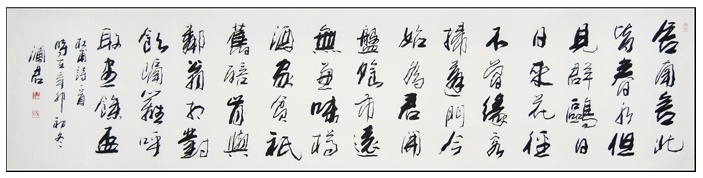 舍南舍北
皆春水但
見群鷗日
日來花徑
不曾緣客
掃蓬門今
始為君開
盤飧市遠
無兼味樽
酒家貧祇
舊醅肯與
鄰翁相對
飲隔籬呼
取盡餘盃
杜甫詩一首
時在辛卯初冬